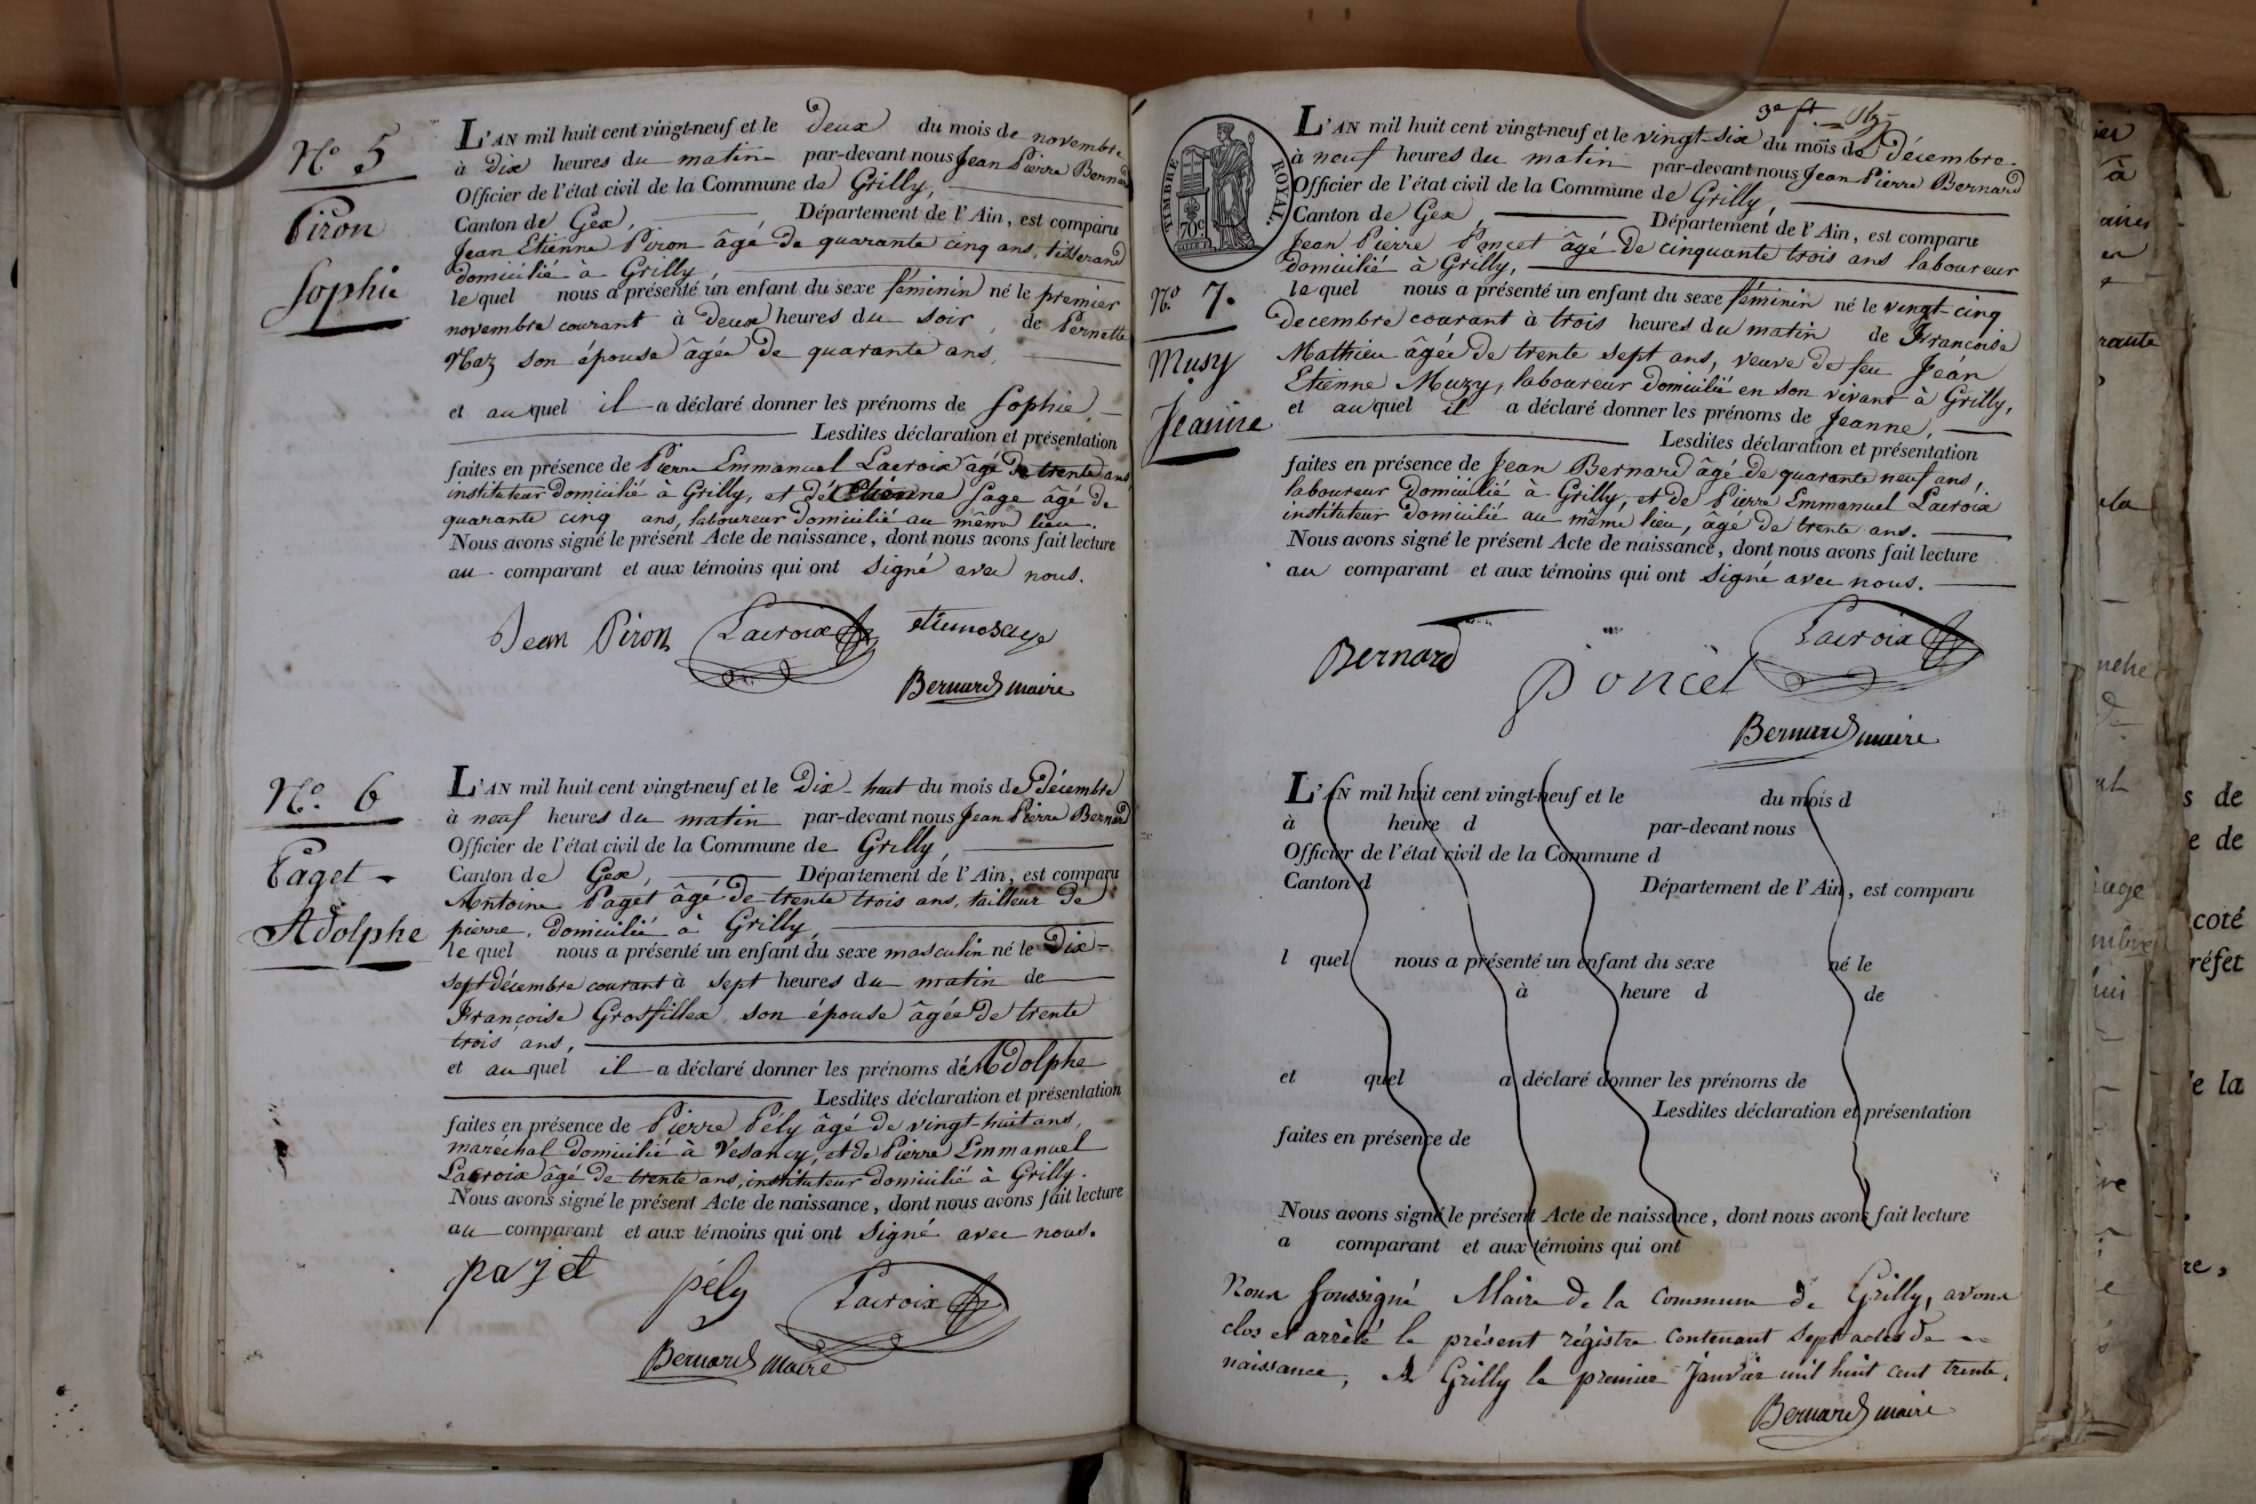 N.º 5
Piron
Sophie
L'AN mil huit cent vingt-neuf et le deux du mois de novembre
à dix heures du matin par-devant nous Jean Pierre Bernard
Officier de l'état civil de la Commune de Grilly,
Canton de Gex, Département de l'Ain, est comparu
Jean Etienne Piron âgé de quarante cinq ans, tisserand
domicilié à Grilly,
lequel nous a présenté un enfant du sexe féminin né le premier
novembre courant à deux heures du soir, de Pernette
Maz son épouse âgée de quarante ans,
et auquel il a déclaré donner les prénoms de Sophie,
Lesdites déclaration et présentation
faites en présence de Pierre Emmanuel Lacroix âgé de trente ans,
instituteur domicilié à Grilly, et de Etienne Sage âgé de
quarante cinq ans, laboureur domicilié au même lieu.
Nous avons signé le présent Acte de naissance, dont nous avons fait lecture
au comparant et aux témoins qui ont signé avec nous.
Jean Piron Lacroix etiennesage
Bernard maire
N.º 6
Paget
Adolphe
L'AN mil huit cent vingt-neuf et le dix-huit du mois de décembre
à neuf heures du matin par-devant nous Jean Pierre Bernard
Officier de l'état civil de la Commune de Grilly,
Canton de Gex, Département de l'Ain, est comparu
Antoine Paget âgé de trente trois ans, tailleur de
pierre, domicilié à Grilly,
lequel nous a présenté un enfant du sexe masculin né le dix-
sept décembre courant à sept heures du matin de
Françoise Grosfillex son épouse âgée de trente
trois ans,
et auquel il a déclaré donner les prénoms de Adolphe
Lesdites déclaration et présentation
faites en présence de Pierre Pély âgé de vingt-huit ans,
maréchal domicilié à Vesancy, et de Pierre Emmanuel
Lacroix âgé de trente ans, instituteur domicilié à Grilly.
Nous avons signé le présent Acte de naissance, dont nous avons fait lecture
au comparant et aux témoins qui ont signé avec nous.
pajet pély Lacroix
Bernard maire
TIMBRE ROYAL.
70c
3e ft
N.º 7.
Musy
Jeanne
L'AN mil huit cent vingt-neuf et le vingt-six du mois de décembre
à neuf heures du matin par-devant nous Jean Pierre Bernard
Officier de l'état civil de la Commune de Grilly,
Canton de Gex, Département de l'Ain, est comparu
Jean Pierre Poncet âgé de cinquante trois ans laboureur
domicilié à Grilly,
lequel nous a présenté un enfant du sexe féminin né le vingt-cinq
decembre courant à trois heures du matin de Françoise
Mathieu âgée de trente sept ans, veuve de feu Jean
Etienne Muzy, laboureur domicilié en son vivant à Grilly,
et auquel il a déclaré donner les prénoms de Jeanne,
Lesdites déclaration et présentation
faites en présence de Jean Bernard âgé de quarante neuf ans,
laboureur domicilié à Grilly, et de Pierre Emmanuel Lacroix
instituteur domicilié au même lieu, âgé de trente ans.
Nous avons signé le présent Acte de naissance, dont nous avons fait lecture
au comparant et aux témoins qui ont signé avec nous.
Bernard Poncet Lacroix
Bernard maire
L'AN mil huit cent vingt-neuf et le du mois d
à heure d par-devant nous
Officier de l'état civil de la Commune d
Canton d Département de l'Ain, est comparu
l quel nous a présenté un enfant du sexe né le
à heure d de
et quel a déclaré donner les prénoms de
Lesdites déclaration et présentation
faites en présence de
Nous avons signé le présent Acte de naissance, dont nous avons fait lecture
a comparant et aux témoins qui ont
Nous soussigné Maire de la Commune de Grilly, avons
clos et arrêté le présent régistre contenant sept actes de
naissance, A Grilly le premier Janvier mil huit cent trente.
Bernard maire